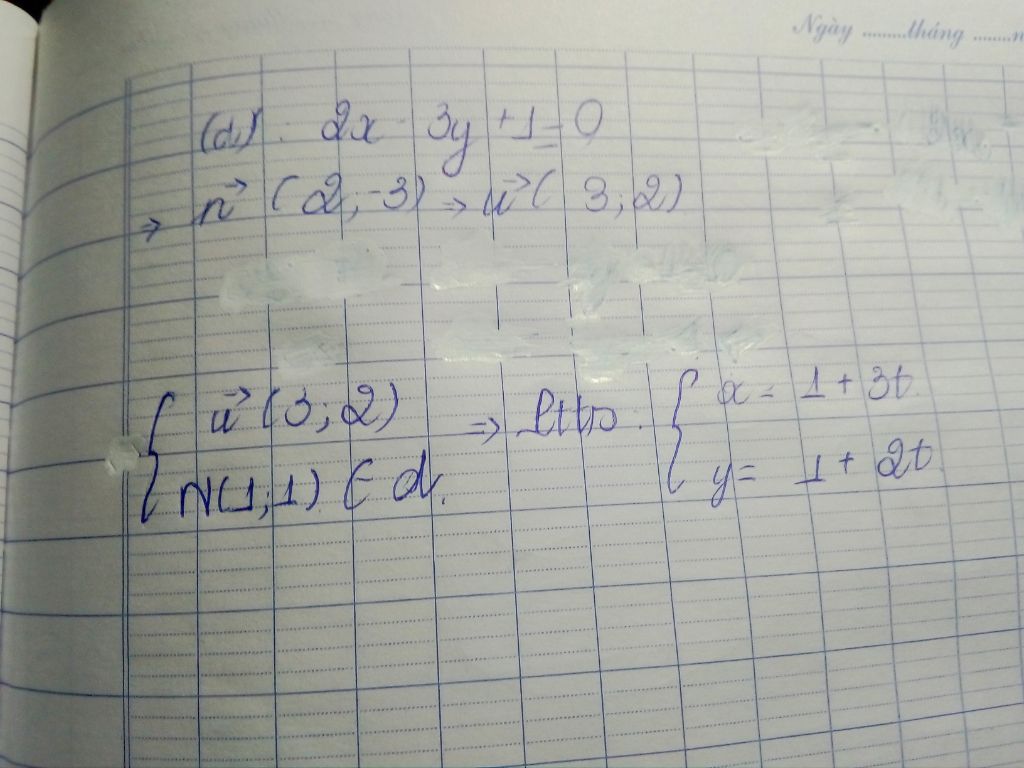 Ngày ........tháng .......n
(d) : 2x - 3y + 1 = 0
⇒ n⃗ (2; -3) ⇒ u⃗ ( 3; 2)
{ u⃗ (3; 2) ⇒ Ptts : { x = 1 + 3t
N(1; 1) ∈ d. y = 1 + 2t